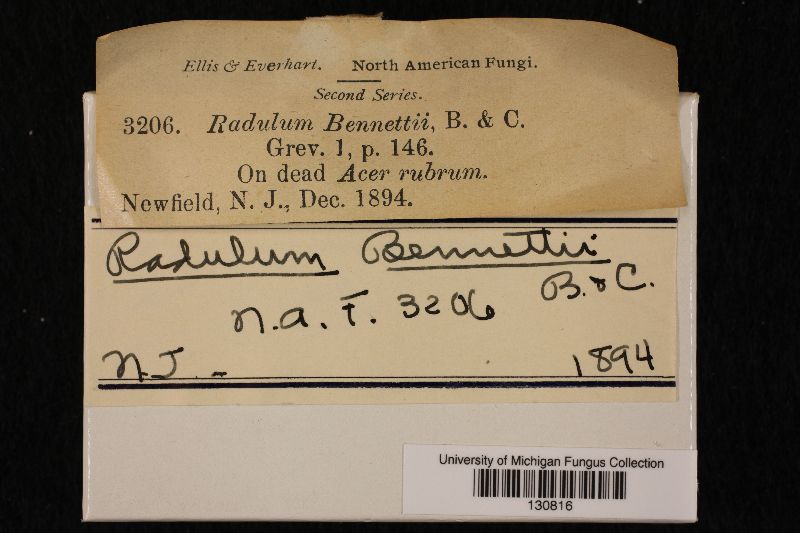 Ellis & Everhart. North American Fungi.
Second Series.
3206. Radulum Bennettii, B. & C.
Grev. 1, p. 146.
On dead Acer rubrum.
Newfield, N. J., Dec. 1894.
Radulum Bennettii
B. & C.
N.A.F. 3206
N.J - 1894
University of Michigan Fungus Collection
130816